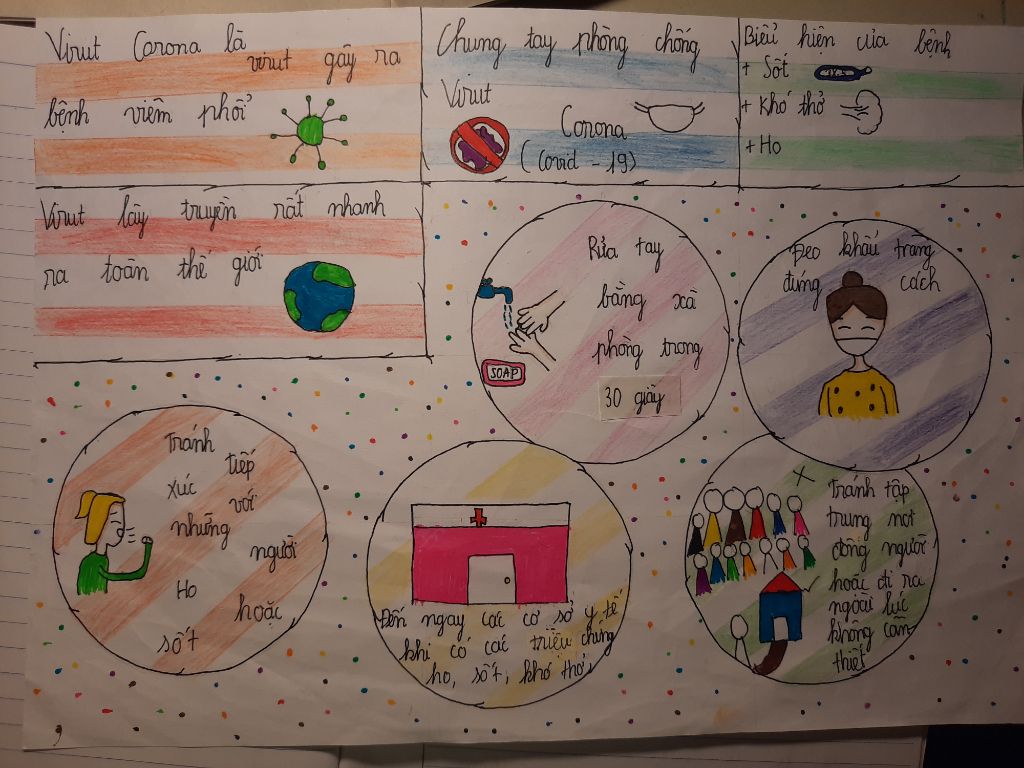 Virut Corona là
virut gây ra
bệnh viêm phổi
Chung tay phòng chống
Virut
Corona
(Covid - 19)
Biểu hiện của bệnh
+ Sốt
+ Khó thở
+ Ho
Virut lây truyền rất nhanh
ra toàn thế giới
Rửa tay
bằng xà
phòng trong
30 giây
SOAP
Đeo khẩu trang
đúng cách
Tránh
tiếp
xúc
với
những
người
Ho
hoặc
sốt
Đến ngay các cơ sở y tế
khi có các triệu chứng
ho, sốt, khó thở
Tránh tập
trung nơi
đông người
hoặc đi ra
ngoài lúc
không cần
thiết